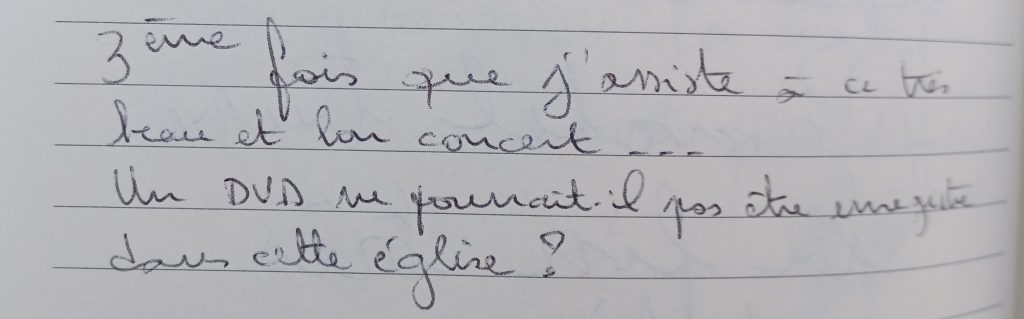 3ème fois que j'assiste à ce très
beau et bon concert ---
Un DVD ne pourrait-il pas être enregistré
dans cette église ?